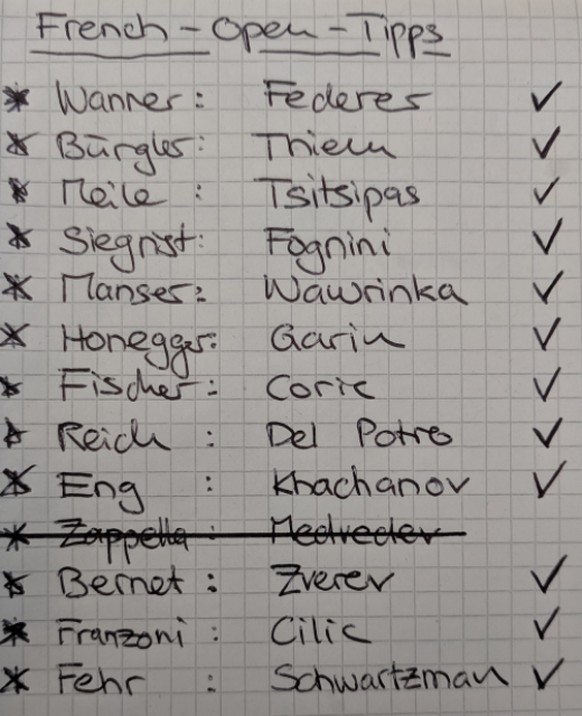 French-Open-Tipps
* Wanner: Federer ✓
* Bürgler: Thiem ✓
* Meile : Tsitsipas ✓
* Siegrist: Fognini ✓
* Manser: Wawrinka ✓
* Honegger: Garin ✓
* Fischer: Coric ✓
* Reich : Del Potro ✓
* Eng : Khachanov ✓
* Zappella: Medvedev
* Bernet: Zverev ✓
* Franzoni: Cilic ✓
* Fehr : Schwartzman ✓